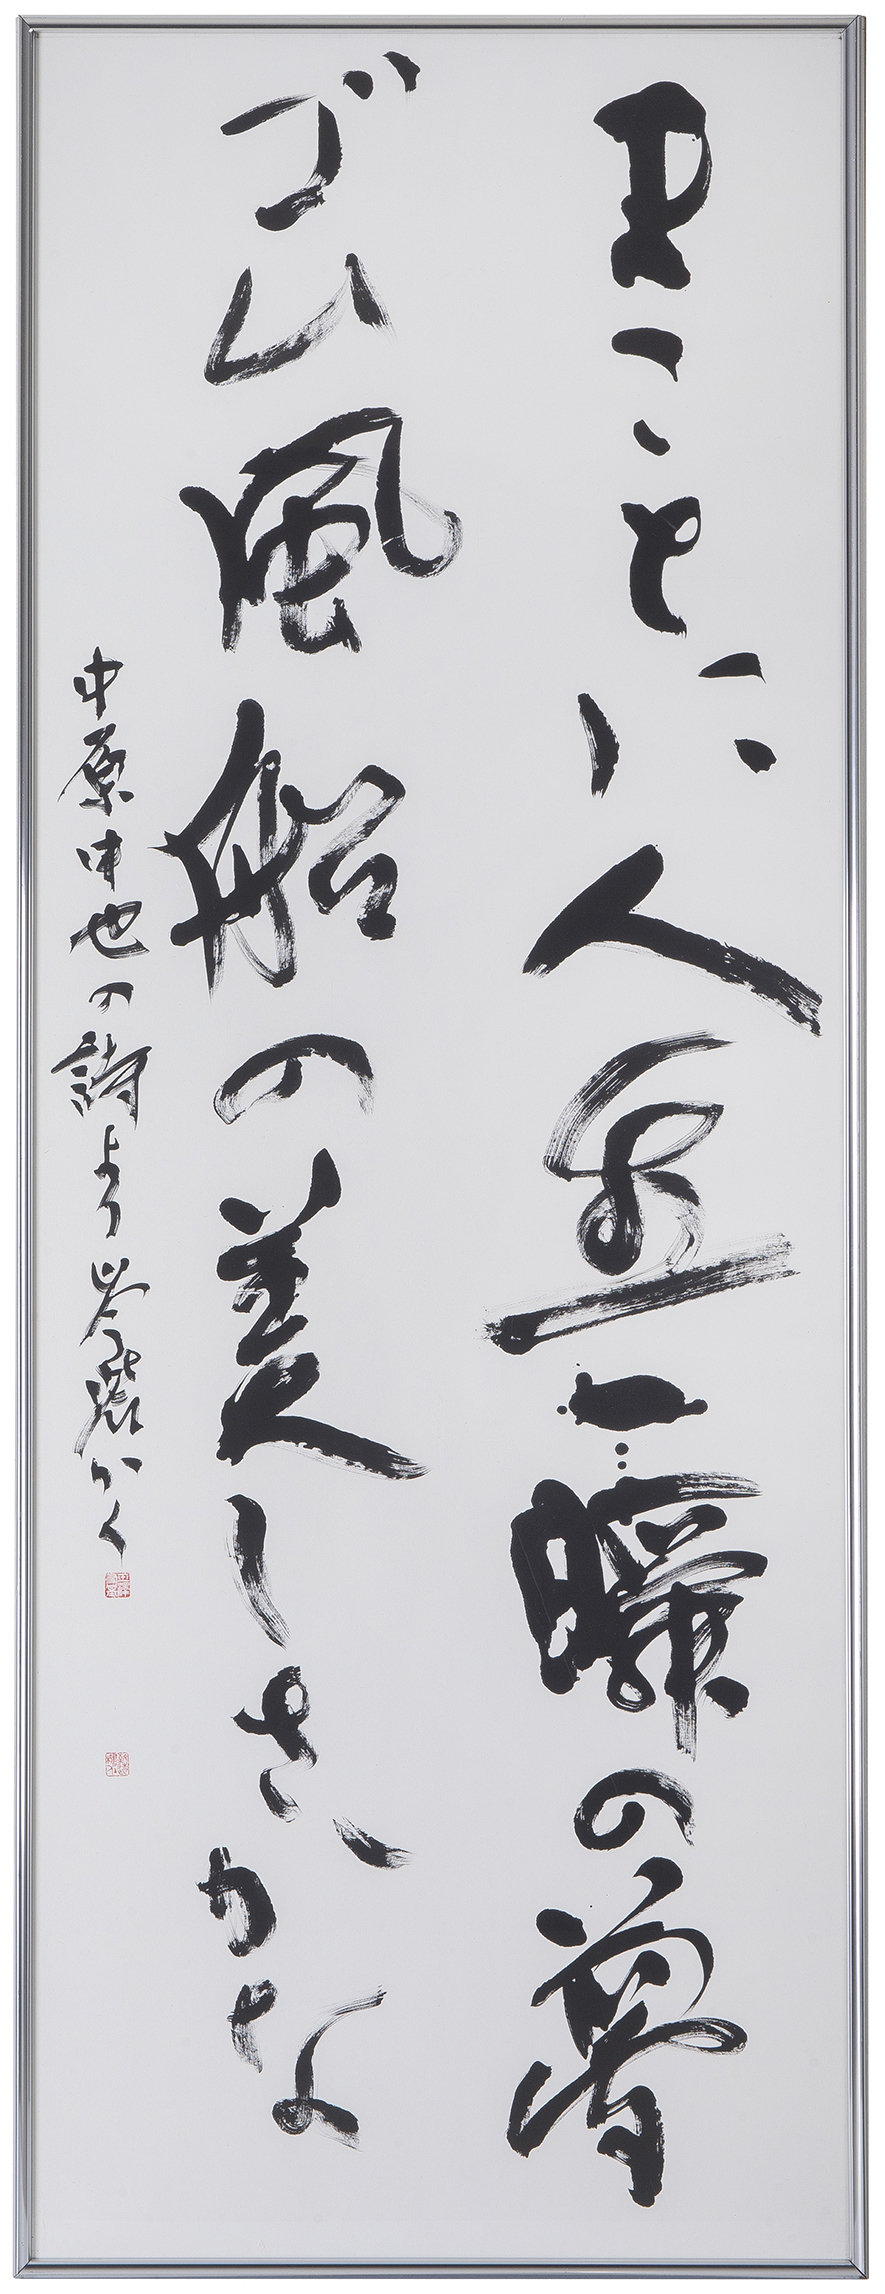 まことに人生一瞬の夢
ゴム風船の美しさかな
中原中也の詩より かく